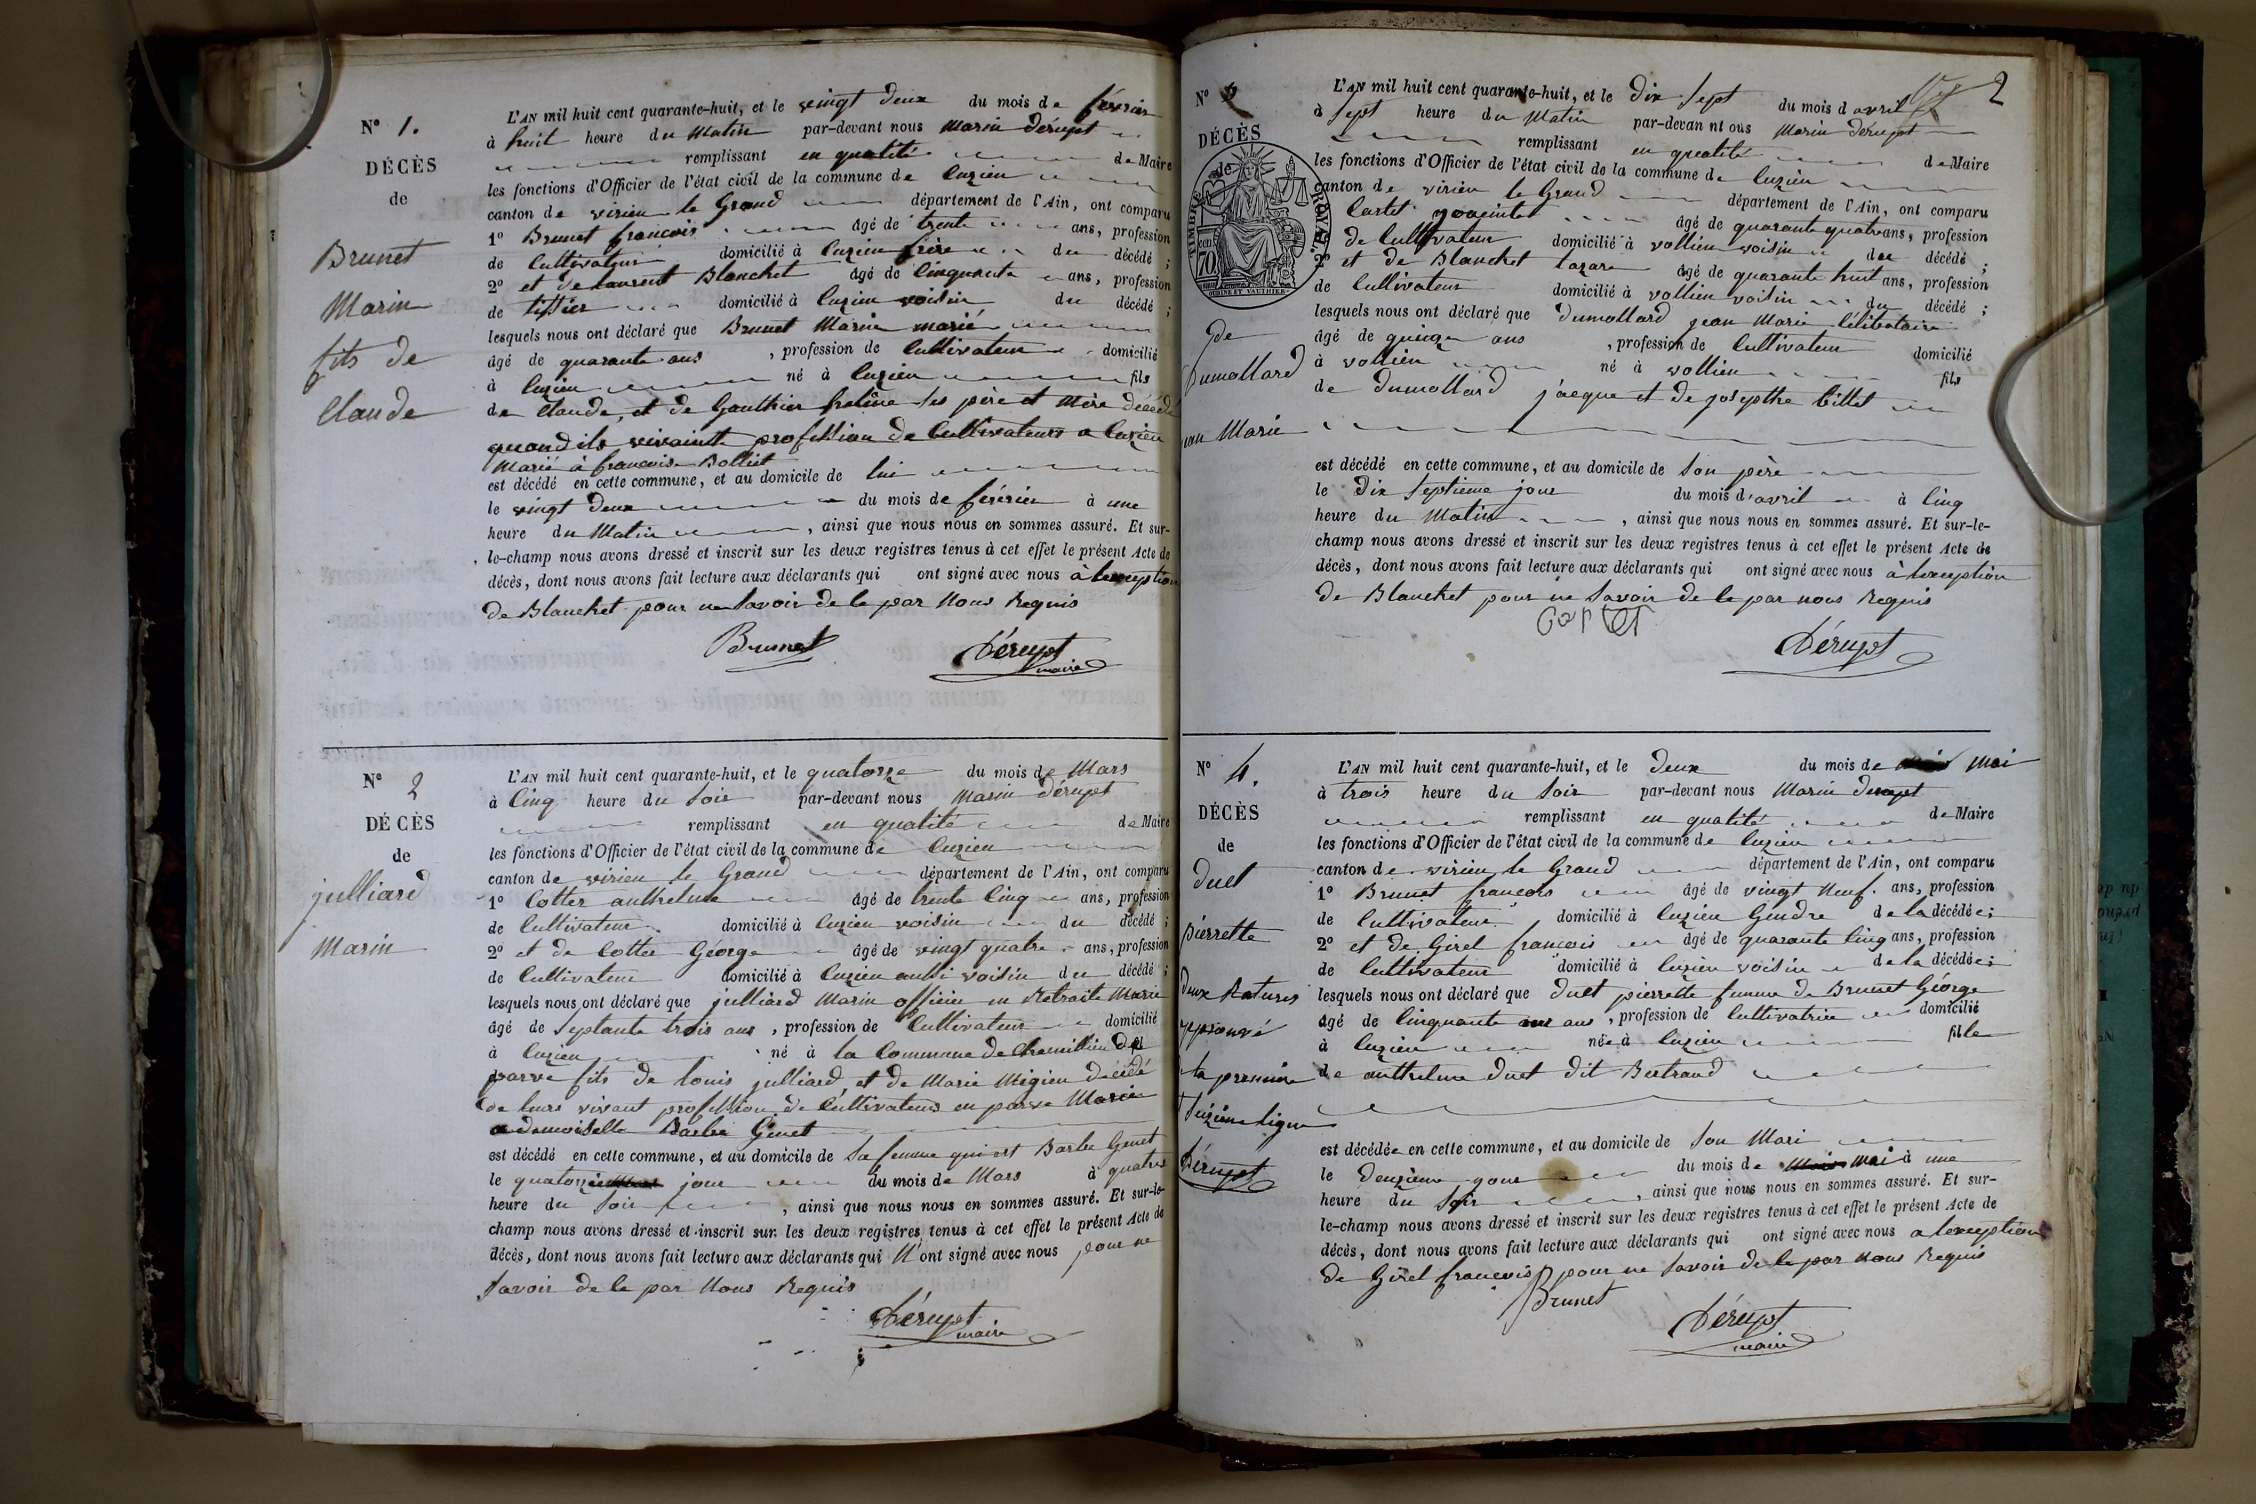 N° 1.
DÉCÈS
de
Brunet
Marin
fils de
Claude
L'AN mil huit cent quarante-huit, et le vingt deux du mois de février
à huit heure du Matin par-devant nous Marin Dérupt
remplissant en qualité de Maire
les fonctions d'Officier de l'état civil de la commune de Cuzieu
canton de virieu le Grand département de l'Ain, ont comparu
1° Brunet françois âgé de trente ans, profession
de Cultivateur domicilié à Cuzieu frère du décédé ;
2° et de Laurent Blanchet âgé de Cinquante ans, profession
de tissier domicilié à Cuzieu voisin du décédé ;
lesquels nous ont déclaré que Brunet Marin marié
âgé de quarante ans , profession de Cultivateur domicilié
à Cuzieu né à Cuzieu fils
de Claude, et de Gauthier ses père et Mère décédé
quand ils vivainte profession de Cultivateurs a Cuzieu
Marié à françoise Bolliet
est décédé en cette commune, et au domicile de lui
le vingt deux du mois de février à une
heure du Matin , ainsi que nous nous en sommes assuré. Et sur-
le-champ nous avons dressé et inscrit sur les deux registres tenus à cet effet le présent Acte de
décès, dont nous avons fait lecture aux déclarants qui ont signé avec nous à lexception
de Blanchet pour ne Savoir de le par Nous Requis
Brunet Dérupt
maire
N° 2
DÉCÈS
de
julliard
Marin
L'AN mil huit cent quarante-huit, et le quatorze du mois de Mars
à Cinq heure du Soir par-devant nous Marin Dérupt
remplissant en qualité de Maire
les fonctions d'Officier de l'état civil de la commune de Cuzieu
canton de virieu le Grand département de l'Ain, ont comparu
1° Cotter anthelme âgé de trente Cinq ans, profession
de Cultivateur domicilié à Cuzieu voisin du décédé ;
2° et de Cotter George âgé de vingt quatre ans, profession
de Cultivateur domicilié à Cuzieu aussi voisin du décédé ;
lesquels nous ont déclaré que julliard Marin officier en Retraite Marié
âgé de Septante trois ans , profession de Cultivateur domicilié
à Cuzieu né à la Commune de Chemillieu de
parve fils de Louis julliard, et de Marie Migieu décédé
de leurs vivant profession de Cultivateurs en parve Marié
a demoiselle Barbe Genet
est décédé en cette commune, et au domicile de Sa femme qui est Barbe Genet
le quatorzieme jour du mois de Mars à quatre
heure du Soir , ainsi que nous nous en sommes assuré. Et sur-le-
champ nous avons dressé et inscrit sur les deux registres tenus à cet effet le présent Acte de
décès, dont nous avons fait lecture aux déclarants qui N'ont signé avec nous pour ne
Savoir de le par Nous Requis
Dérupt
maire
2
N° 3
DÉCÈS
de
TIMBRE ROYAL.
70
de
Dumollard
jean Marie
L'AN mil huit cent quarante-huit, et le Dix Sept du mois d avril
à Sept heure du Matin par-devan nt ous Marin Dérupt
remplissant en qualité de Maire
les fonctions d'Officier de l'état civil de la commune de Cuzieu
canton de virieu le Grand département de l'Ain, ont comparu
Cartet âgé de quarante quatre ans, profession
de Cultivateur domicilié à vollien voisin du décédé ;
2° et de Blanchet Lazare âgé de quarante huit ans, profession
de Cultivateur domicilié à vollien voisin du décédé ;
lesquels nous ont déclaré que Dumollard jean Marie Célibataire
âgé de quinze ans , profession de Cultivateur domicilié
à vollien né à vollien fils
de Dumollard jacque et de josepthe billet
est décédé en cette commune, et au domicile de Son père
le Dix Septieme jour du mois d'avril à Cinq
heure du Matin , ainsi que nous nous en sommes assuré. Et sur-le-
champ nous avons dressé et inscrit sur les deux registres tenus à cet effet le présent Acte de
décès, dont nous avons fait lecture aux déclarants qui ont signé avec nous à lexception
de Blanchet pour ne Savoir de le par nous Requis
Cartet
Dérupt
N° 4.
DÉCÈS
de
Duet
pierrette
deux Ratures
approuvé
la premiere
Seizieme ligne
Dérupt
L'AN mil huit cent quarante-huit, et le Deux du mois de Mai
à trois heure du Soir par-devant nous Marin Derupt
remplissant en qualité de Maire
les fonctions d'Officier de l'état civil de la commune de Cuzieu
canton de virieu le Grand département de l'Ain, ont comparu
1° Brunet françois âgé de vingt Neuf. ans, profession
de Cultivateur domicilié à Cuzieu Gendre de la décédée ;
2° et de Girel francois âgé de quarante Cinq ans, profession
de Cultivateur domicilié à Cuzieu voisin de la décédée ;
lesquels nous ont déclaré que Duet pierrette femme de Brunet George
âgé de Cinquante ans , profession de Cultivatrice domicilié
à Cuzieu née à Cuzieu fille
de anthelme Duet dit Bertrand
est décédée en cette commune, et au domicile de Son Mari
le Deuxieme jour du mois de mai à une
heure du Soir , ainsi que nous nous en sommes assuré. Et sur-
le-champ nous avons dressé et inscrit sur les deux registres tenus à cet effet le présent Acte de
décès, dont nous avons fait lecture aux déclarants qui ont signé avec nous a lexception
de Girel francois pour ne Savoir de le par Nous Requis
Brunet
Dérupt
maire